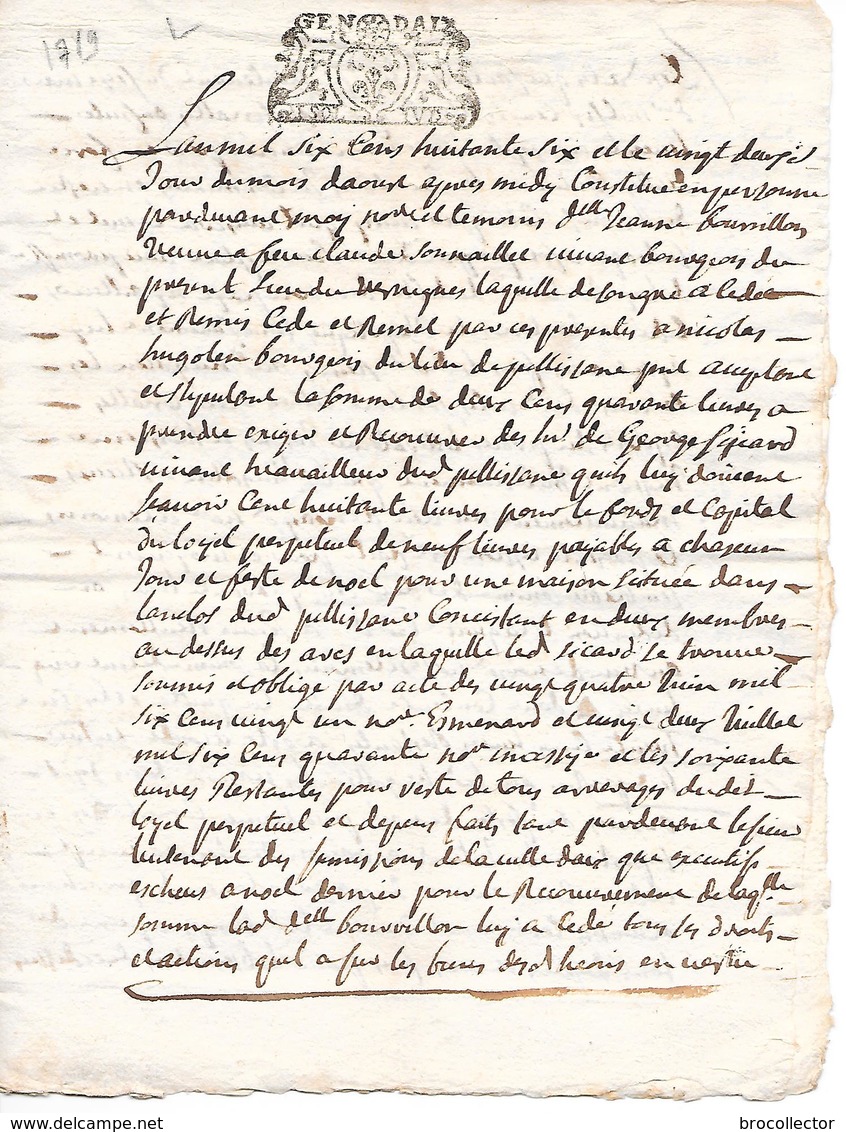 1719
GEN DAIX
Lan mil six cens huitante six et le vingt deuxie
Jour du mois daoust apres midy Constitue en personne
pardevant moy nore et temoins dlle Jeanne bourrillon
veuve a feu claude sonnaillet vivant bourgeois du
present Lieu du vernegues laquelle de son gre a cedé
et Remis Cede et Remet par ces presentes a nicolas
hugolen bourgeois du lieu de pellissane pnt aceptant
et stipulant la somme de deux Cens quarante livres a
prendre exiger et Recouvrer des hrs de George Sicard
vivant travailleur dud pellissane quils luy doivent
scavoir Cent huitante livres pour le fonds et Capital
du loyel perpetuel de neuf livres payables a chascun
Jour et feste de noel pour une maison scituée dans
lanclos dud pellissane Concistant en deux membres
au dessus des arcs en laquelle led sicard se trouve
soumis et obligé par acte des vingt quatre Juin mil
six cens vingt un nore Esmenard et vingt deux Juillet
mil six Cens quarante nore massije et les soixante
livres Restantes pour reste de tous arrerages dudit
loyel perpetuel et depens faits tant pardevant le sieur
lieutenant des sumissions de la ville daix que executifs
escheus a noel dernier pour le Recouvrement de laqlle
somme lad dlle bourrillon luy a cedé tous ses droits
et actions quel a sur les biens desd heoirs en vertu
brocollector